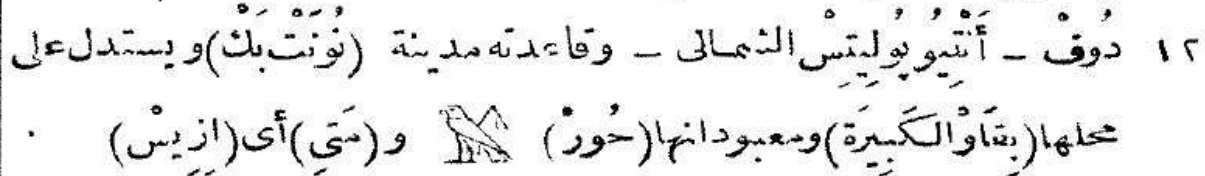 ١٢ دُوفْ - أَنْتِيُو پُولِيتِسْ الشمالى - وقاعدته مدينة (نُونَتْ بَكْ) ويستدل على
محلها (بِقَاوْ الكَبِيرَة) ومعبوداتها (حُورْ) و (مَتِى) أى (اِزِيسْ) ·